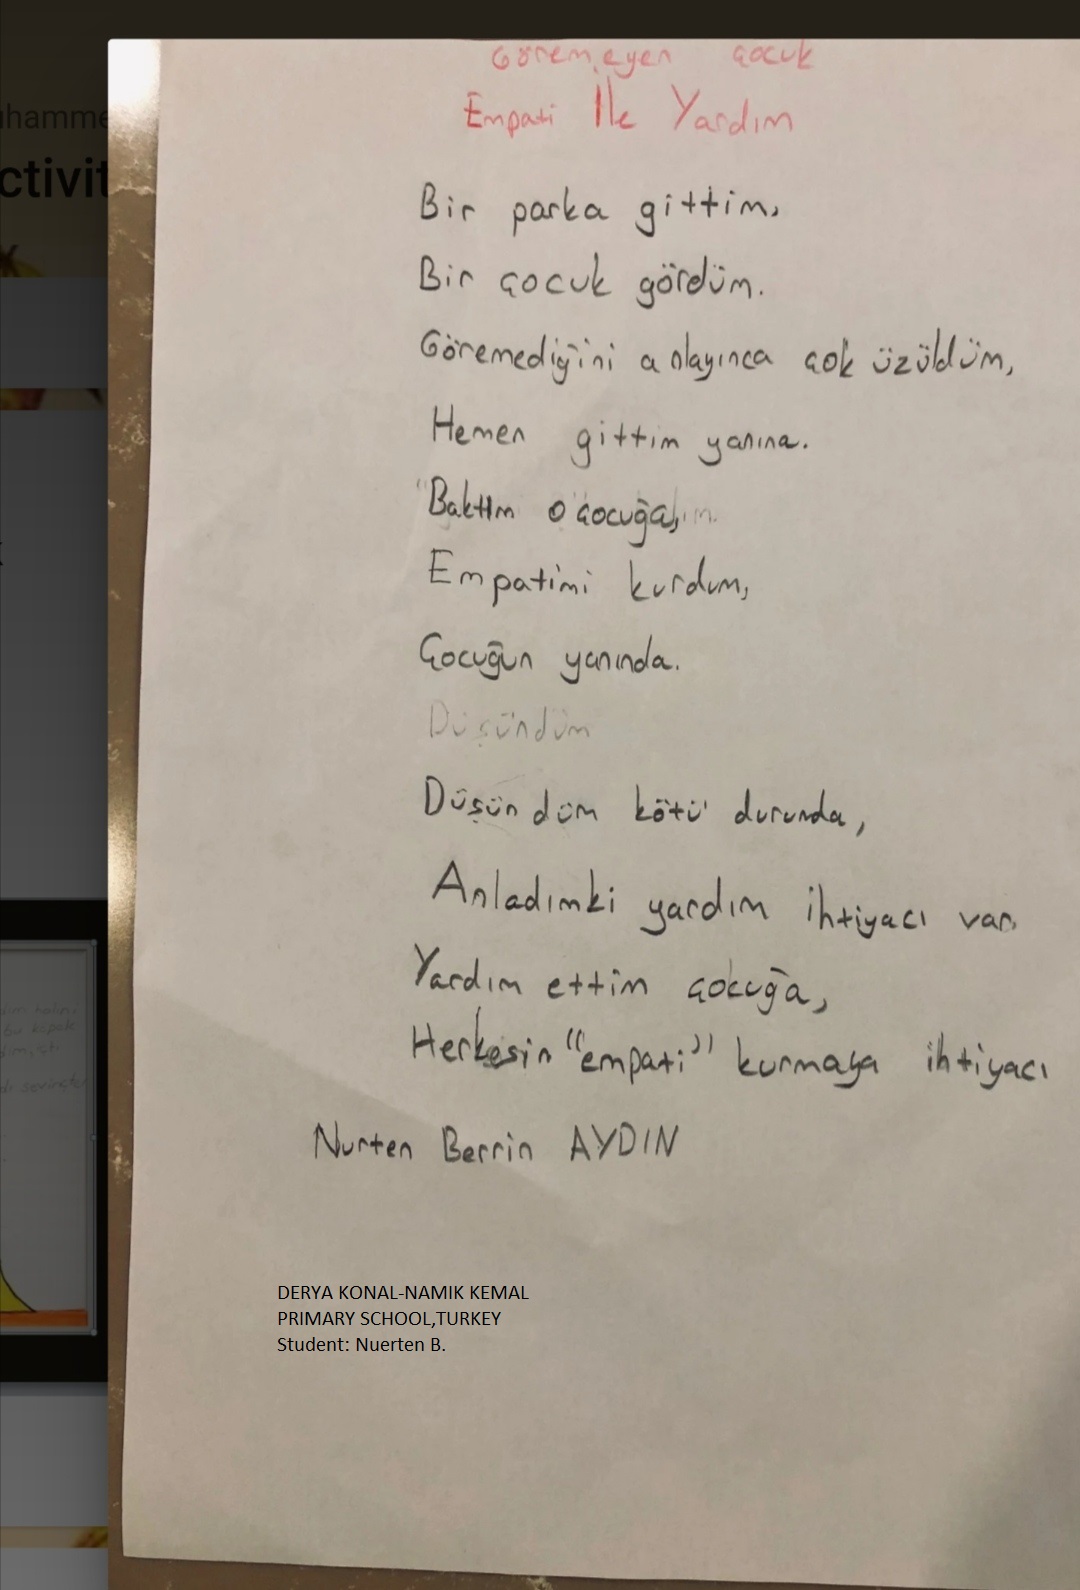 Göremeyen çocuk
Empati İle Yardım
Bir parka gittim,
Bir çocuk gördüm.
Göremediğini anlayınca çok üzüldüm,
Hemen gittim yanına.
"Baktım o çocuğa,
Empatimi kurdum,
Çocuğun yanında.
Düşündüm
Düşündüm kötü durunda,
Anladımki yardım ihtiyacı var.
Yardım ettim çocuğa,
Herkesin "empati" kurmaya ihtiyacı
Nurten Berrin AYDIN
DERYA KONAL-NAMIK KEMAL
PRIMARY SCHOOL,TURKEY
Student: Nuerten B.
uhamme
ctivit